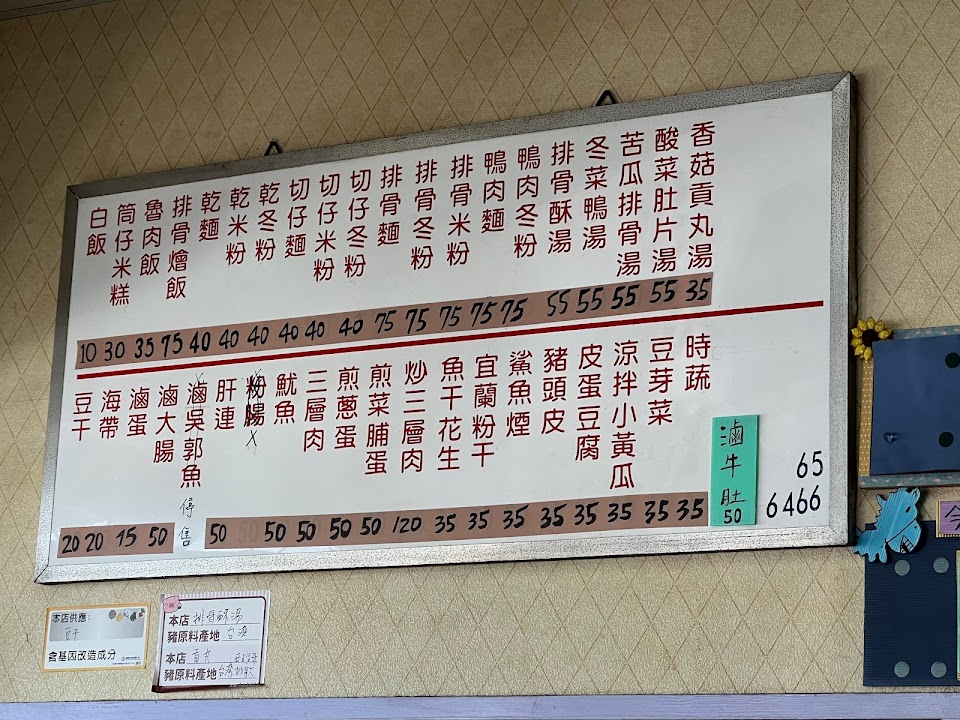 白飯 10
筒仔米糕 30
魯肉飯 35
排骨燴飯 75
乾麵 40
乾米粉 40
乾冬粉 40
切仔麵 40
切仔米粉 40
切仔冬粉 40
排骨麵 75
排骨冬粉 75
排骨米粉 75
鴨肉麵 75
鴨肉冬粉 75
排骨酥湯 55
冬菜鴨湯 55
苦瓜排骨湯 55
酸菜肚片湯 55
香菇貢丸湯 35
豆干 20
海帶 20
滷蛋 15
滷大腸 50
滷吳郭魚 停售
肝連 50
粉腸
魷魚 50
三層肉 50
煎蔥蛋 50
煎菜脯蛋 50
炒三層肉 120
魚干花生 35
宜蘭粉干 35
鯊魚煙 35
豬頭皮 35
皮蛋豆腐 35
涼拌小黃瓜 35
豆芽菜 35
時蔬 35
滷牛肚 50
65
6466
今
本店供應:
豆干
含基因改造成分
本店 排骨酥湯
豬原料產地 台灣
本店 貢丸
豬原料產地 台灣